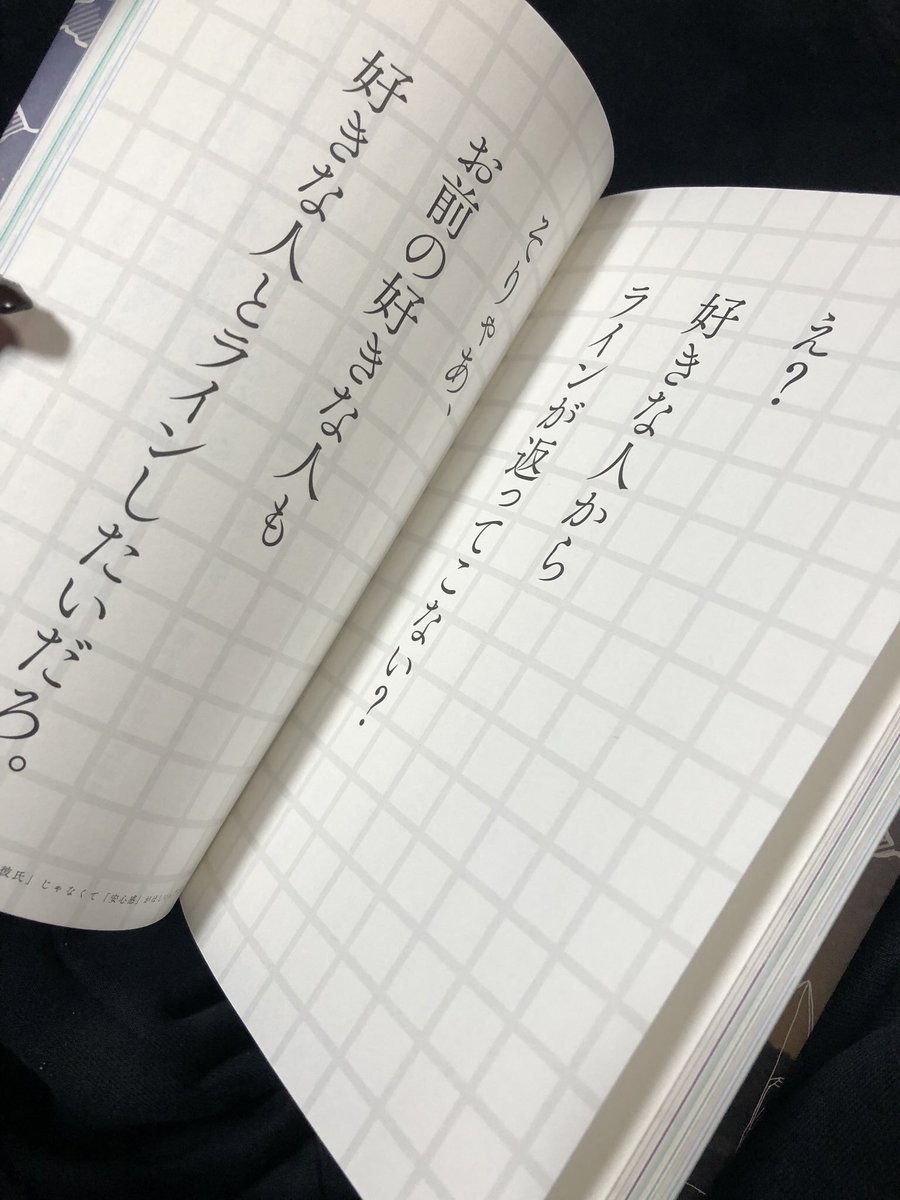 え？
好きな人から
ラインが返ってこない？
そりゃあ、
お前の好きな人も
好きな人とラインしたいだろ。
彼氏」じゃなくて「安心感」が